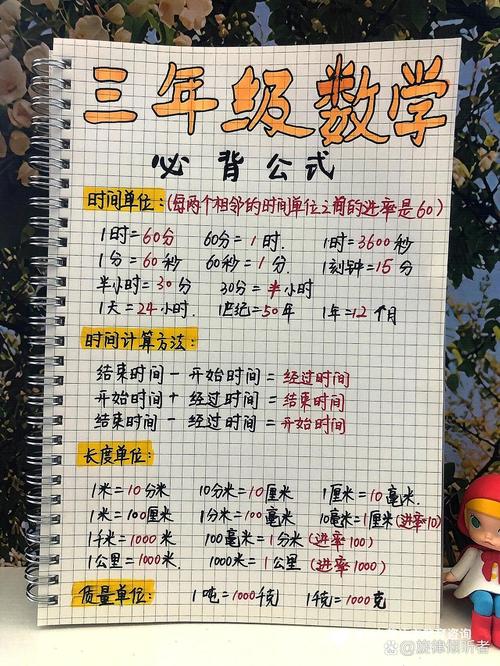 三年级数学
必背公式
时间单位:(每两个相邻的时间单位之间的进率是60)
1时=60分 60分=1时. 1时=3600秒
1分=60秒 60秒=1分. 1刻钟=15分
半小时=30分 30分=半小时
1天=24小时. 1世纪=50年 1年=12个月
时间计算方法:
结束时间-开始时间=经过时间
开始时间+经过时间=结束时间
结束时间-经过时间=开始时间
长度单位:
1米=10分米 10分米=10厘米 1厘米=10毫米.
1米=100厘米 1分米=100毫米 10毫米=1厘米(进率10)
1千米=1000米 100毫米=1分米(进率100)
1公里=1000米. 1000米=1公里(进率1000)
质量单位: 1吨=1000千克 1千克=1000克
@旋律倾听者